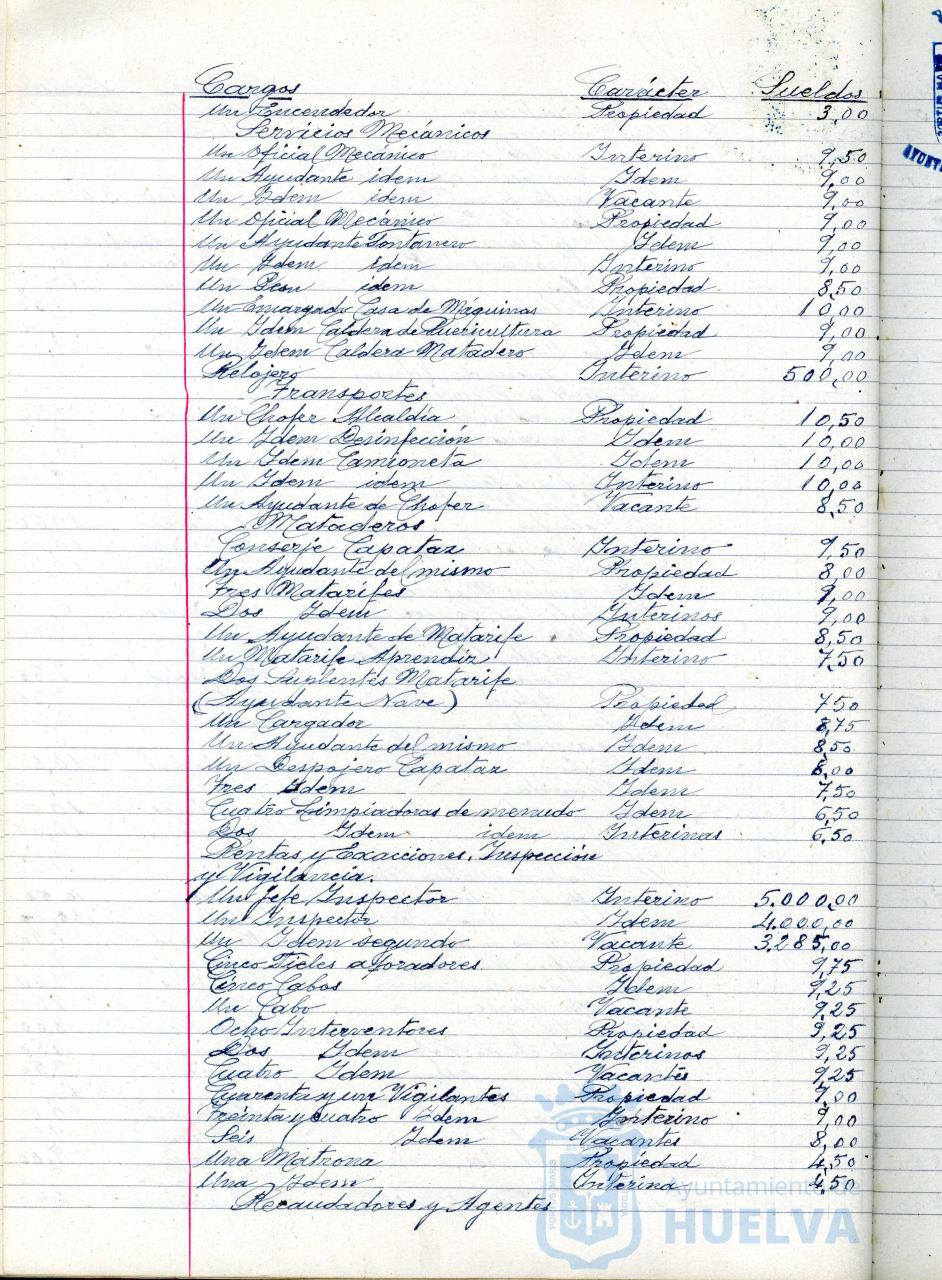 Cargos Carácter Sueldos
Un Encendedor Propiedad 3,00
Servicios Mecánicos
Un Oficial Mecánico Interino 9,50
Un Ayudante idem Idem 9,00
Un Idem idem Vacante 9,00
Un Oficial Mecánico Propiedad 9,00
Un Ayudante Fontanero Idem 9,00
Un Idem idem Interino 9,00
Un Peon idem Propiedad 8,50
Un Encargado Casa de Máquinas Interino 10,00
Un Idem Caldera de Puericultura Propiedad 9,00
Un Idem Caldera Matadero Idem 9,00
Relojero Interino 500,00
Transportes
Un Chofer Alcaldía Propiedad 10,50
Un Idem Desinfección Idem 10,00
Un Idem Camioneta Idem 10,00
Un Idem idem Interino 10,00
Un Ayudante de Chofer Vacante 8,50
Mataderos
Conserje Capataz Interino 9,50
Un Ayudante del mismo Propiedad 8,00
Tres Matarifes Idem 9,00
Dos Idem Interinos 9,00
Un Ayudante de Matarife Propiedad 8,50
Un Matarife Aprendiz Interino 7,50
Dos Suplentes Matarife
(Ayudante Nave) Propiedad 7,50
Un Cargador Idem 8,75
Un Ayudante del mismo Idem 8,50
Un Despojero Capataz Idem 8,00
Tres Idem Idem 7,50
Cuatro Limpiadoras de menudo Idem 6,50
Dos Idem idem Interinas 6,50
Rentas y Exacciones. Inspección
y Vigilancia.
Un Jefe Inspector Interino 5.000,00
Un Inspector Idem 4.000,00
Un Idem segundo Vacante 3.285,00
Cinco Fieles aforadores Propiedad 9,75
Cinco Cabos Idem 9,25
Un Cabo Vacante 9,25
Ocho Interventores Propiedad 9,25
Dos Idem Interinos 9,25
Cuatro Idem Vacantes 9,25
Cuarenta y un Vigilantes Propiedad 9,00
Treinta y cuatro Idem Interino 9,00
Seis Idem Vacantes 8,00
Una Matrona Propiedad 4,50
Una Idem Interina 4,50
Recaudadores y Agentes
Ayuntamiento de
HUELVA